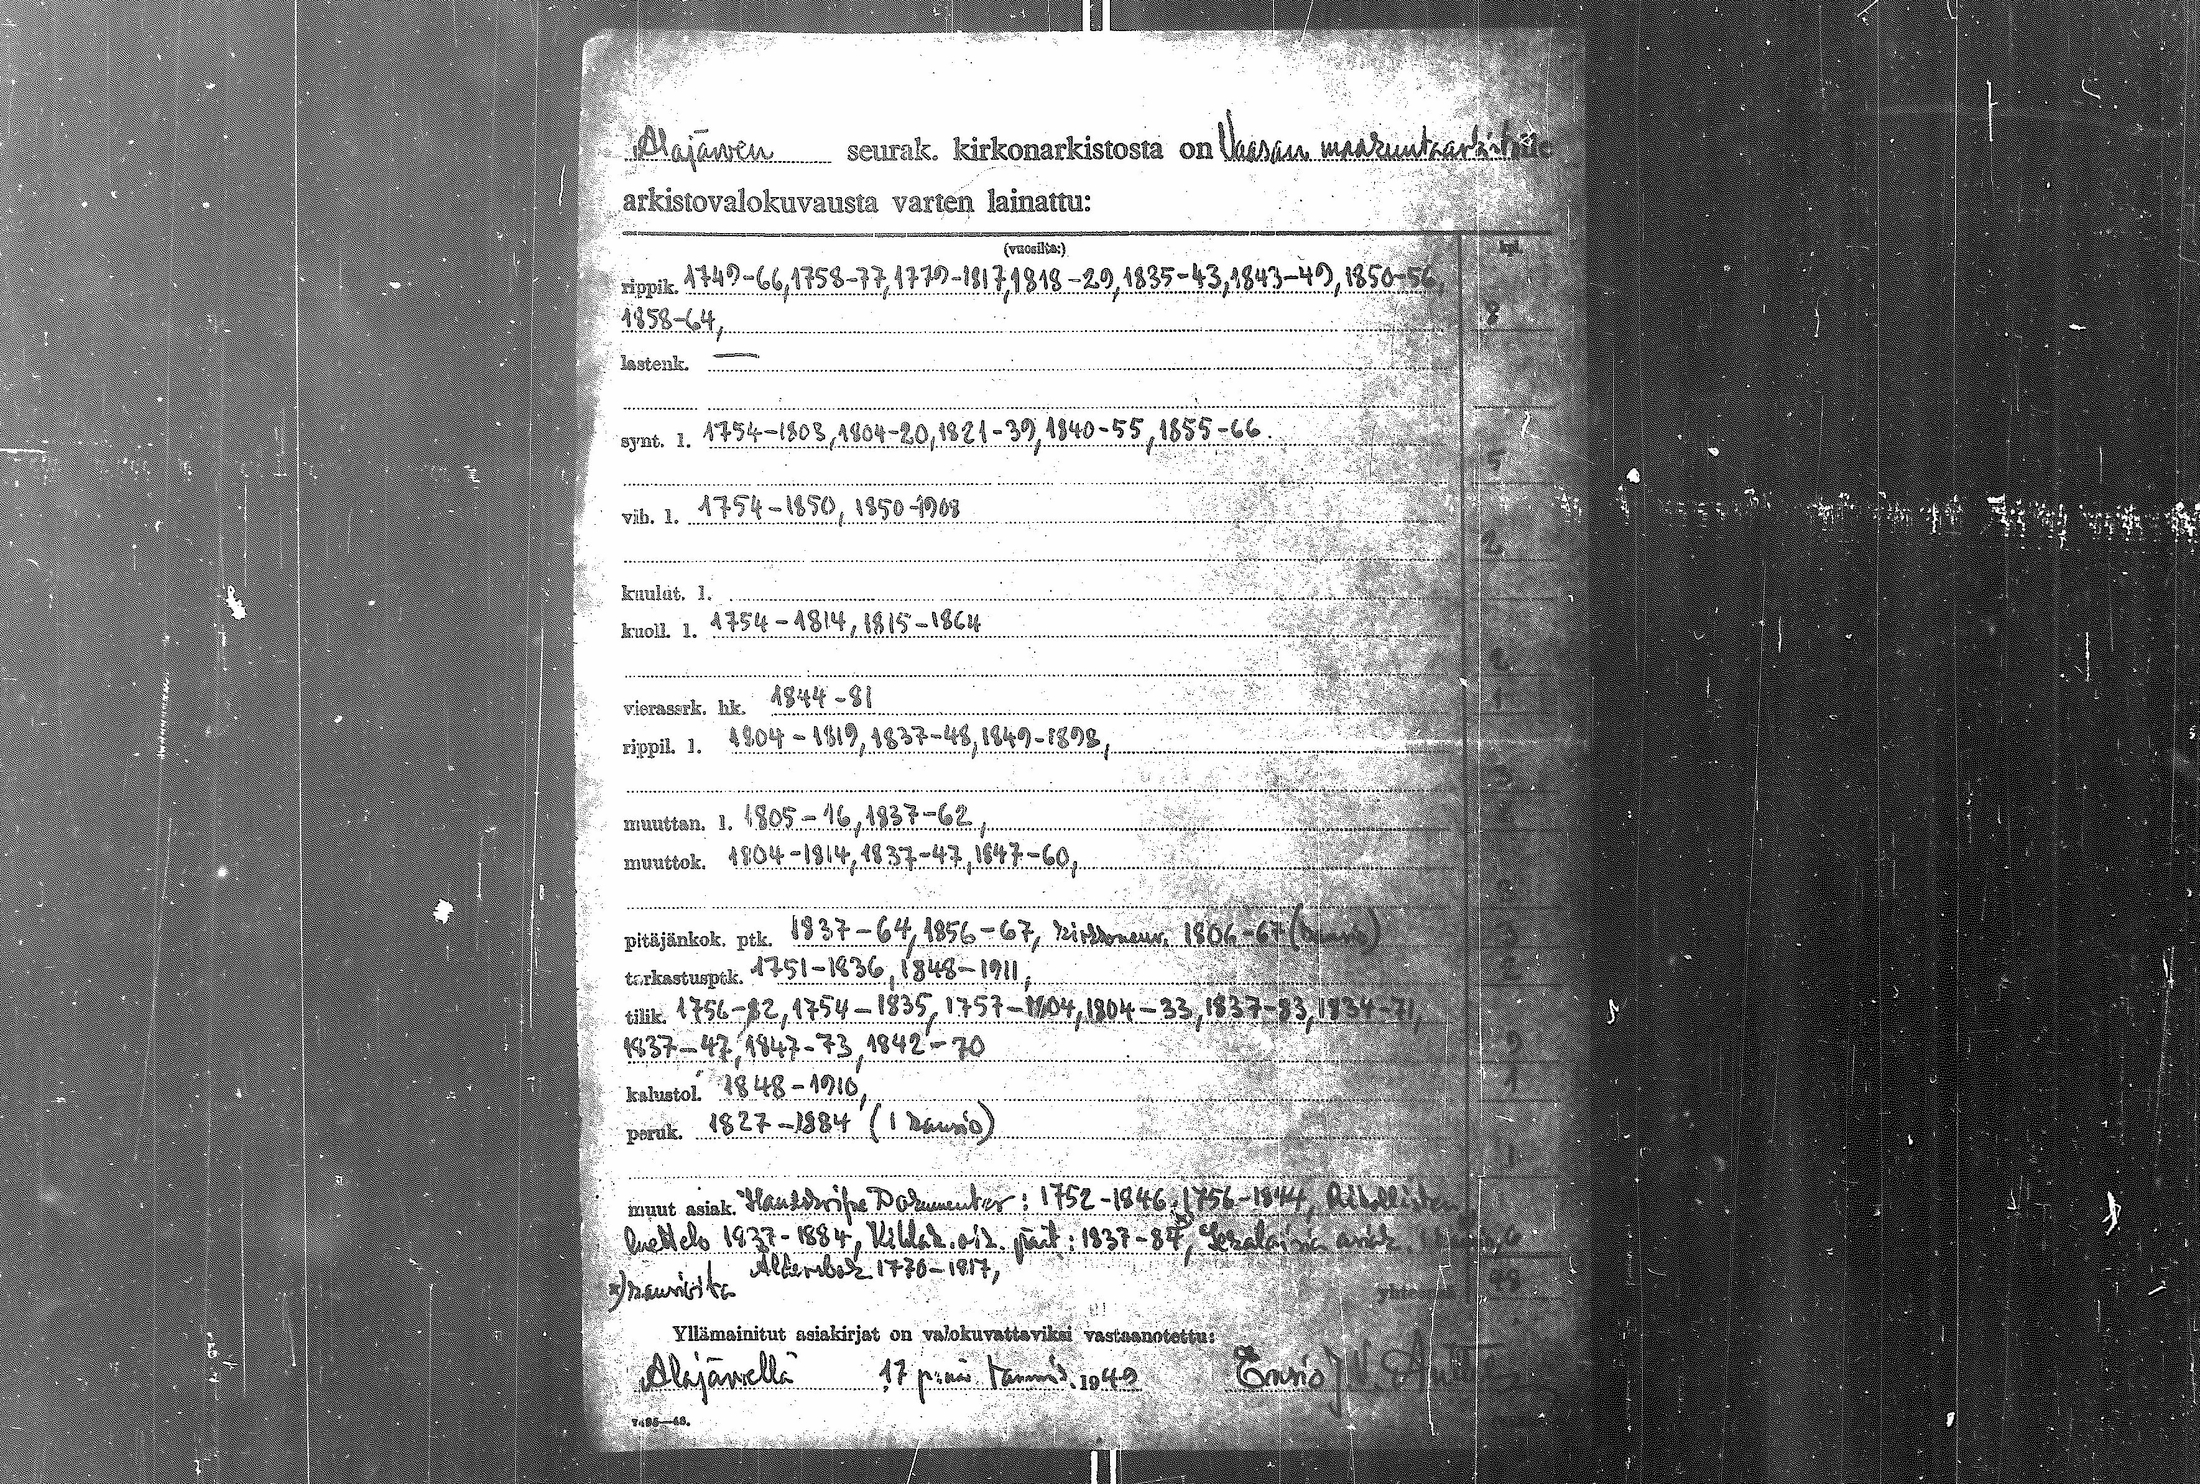 Alajärven seurak. kirkonarkistosta on Vaasan maakuntaarkistolle
arkistovalokuvausta varten lainattu:
(vuosilta:) kpl.
rippik. 1749-66, 1758-77, 1779-1817, 1818-29, 1835-43, 1843-49, 1850-56,
1858-64, 8
lastenk. —
synt. l. 1754-1803, 1804-20, 1821-39, 1840-55, 1855-66.
5
vih. l. 1754-1850, 1850-1908
2
kuulut. l.
kuoll. l. 1754-1814, 1815-1864
2
vierassrk. hk. 1844-81 1
rippil. l. 1804-1819, 1837-48, 1849-1898,
3
muuttan. l. 1805-16, 1837-62,
muuttok. 1804-1814, 1837-47, 1847-60,
pitäjänkok. ptk. 1837-64, 1856-67, 1806-67 3
tarkastusptk. 1751-1836, 1848-1911, 2
tilik. 1756-82, 1754-1835, 1757-1804, 1804-33, 1837-83, 1834-71,
1837-47, 1847-73, 1842-70 9
kalustol. 1848-1910, 1
peruk. 1827-1884 (1 kansio)
1
muut asiak. Dokumenter: 1752-1846, 1756-1844,
luettelo 1837-1884, 1837-87, Sekalaisia asiak. 6
Altersbok 1770-1817,
*) kansiosta yhteensä 48
Yllämainitut asiakirjat on valokuvattaviksi vastaanotettu:
Alajärvellä 17 p:nä tammik. 1949 Ensio